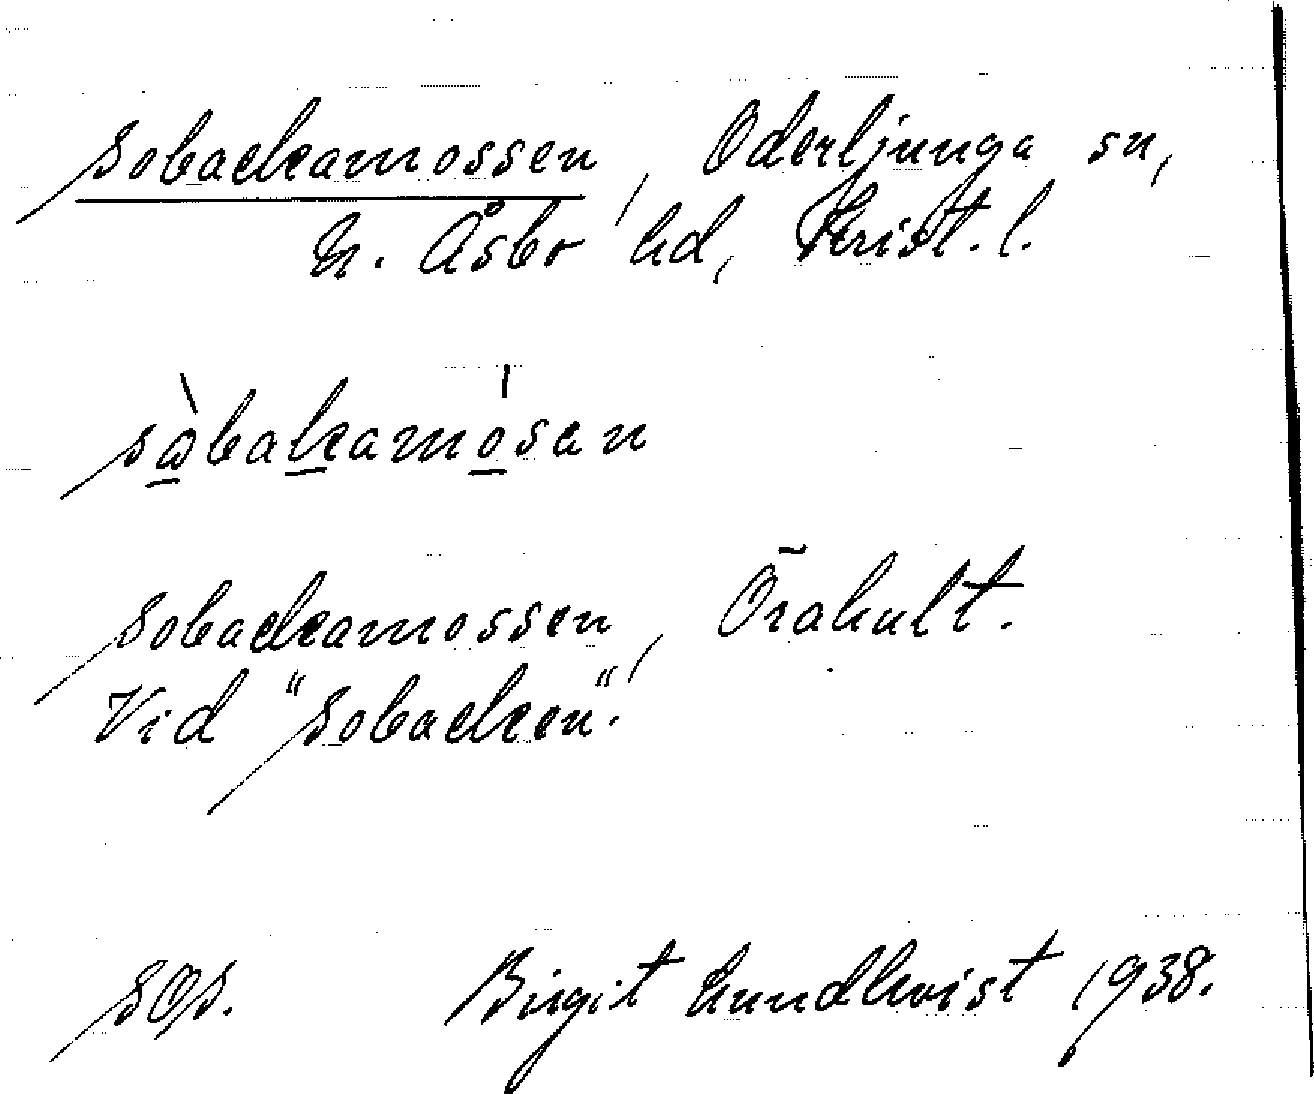 Sobackamossen, Oderljunga sn,
N. Åsbo hd, Krist. l.
såbakamosan
Sobackamossen, Örahult.
Vid "Sobacken".
SOS. Birgit Lundkvist 1938.